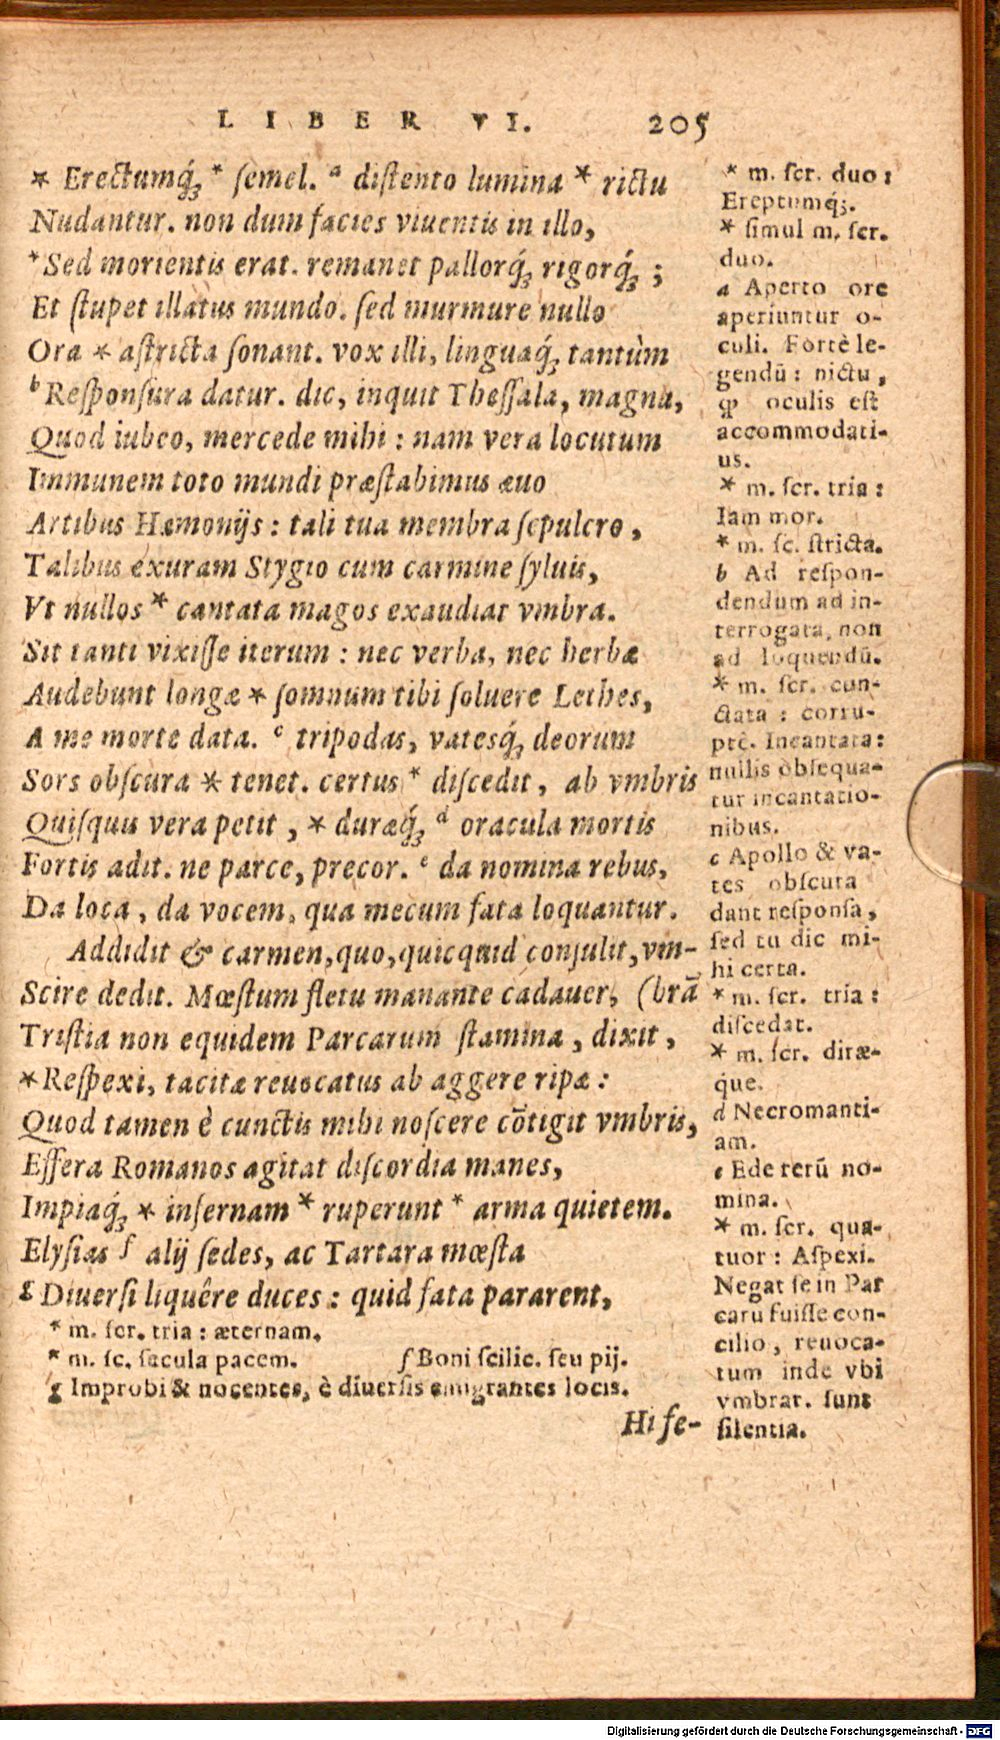 LIBER VI. 205
* Erectumq́ꝫ * semel. a distento lumina * rictu
Nudantur. non dum facies viuentis in illo,
*Sed morientis erat. remanet pallorq́ꝫ rigorq́ꝫ;
Et stupet illatus mundo. sed murmure nullo
Ora * astricta sonant. vox illi, linguaq́ꝫ tantùm
b Responsura datur. dic, inquit Thessala, magna,
Quod iubeo, mercede mihi: nam vera locutum
Immunem toto mundi præstabimus æuo
Artibus Hæmonijs: tali tua membra sepulcro,
Talibus exuram Stygio cum carmine syluis,
Vt nullos * cantata magos exaudiat vmbra.
Sit tanti vixisse iterum: nec verba, nec herbæ
Audebunt longæ * somnum tibi soluere Lethes,
A me morte data. c tripodas, vatesq́ꝫ deorum
Sors obscura * tenet. certus * discedit, ab vmbris
Quisquis vera petit, * duræq́ꝫ d oracula mortis
Fortis adit. ne parce, precor. e da nomina rebus,
Da loca, da vocem, qua mecum fata loquantur.
Addidit & carmen, quo, quicquid consulit, vm-
Scire dedit. Mœstum fletu manante cadauer, (brā
Tristia non equidem Parcarum stamina, dixit,
*Respexi, tacitæ reuocatus ab aggere ripæ:
Quod tamen è cunctis mihi noscere cōtigit vmbris,
Effera Romanos agitat discordia manes,
Impiaq́ꝫ * infernam * ruperunt * arma quietem.
Elysias f alij sedes, ac Tartara mœsta
g Diuersi liquêre duces: quid fata pararent,
* m. scr. tria: æternam.
* m. sc. sæcula pacem. f Boni scilic. seu pij.
g Improbi & nocentes, è diuersis emigrantes locis.
Hi se-
* m. scr. duo:
Ereptumq́ꝫ.
* simul m. scr.
duo.
a Aperto ore
aperiuntur o-
culi. Fortè le-
gendū: nictu,
ꝙ oculis est
accommodati-
us.
* m. scr. tria:
Iam mor.
* m. sc. stricta.
b Ad respon-
dendum ad in-
terrogata, non
ad loquendū.
* m. scr. cun-
ctata: corru-
ptè. Incantata:
nullis obsequa-
tur incantatio-
nibus.
c Apollo & va-
tes obscura
dant responsa,
sed tu dic mi-
hi certa.
* m. scr. tria:
discedat.
* m. scr. diræ-
que.
d Necromanti-
am.
e Ede rerū no-
mina.
* m. scr. qua-
tuor: Aspexi.
Negat se in Par
carū fuisse con-
cilio, reuoca-
tum inde vbi
vmbrar. sunt
silentia.
Digitalisierung gefördert durch die Deutsche Forschungsgemeinschaft - DFG